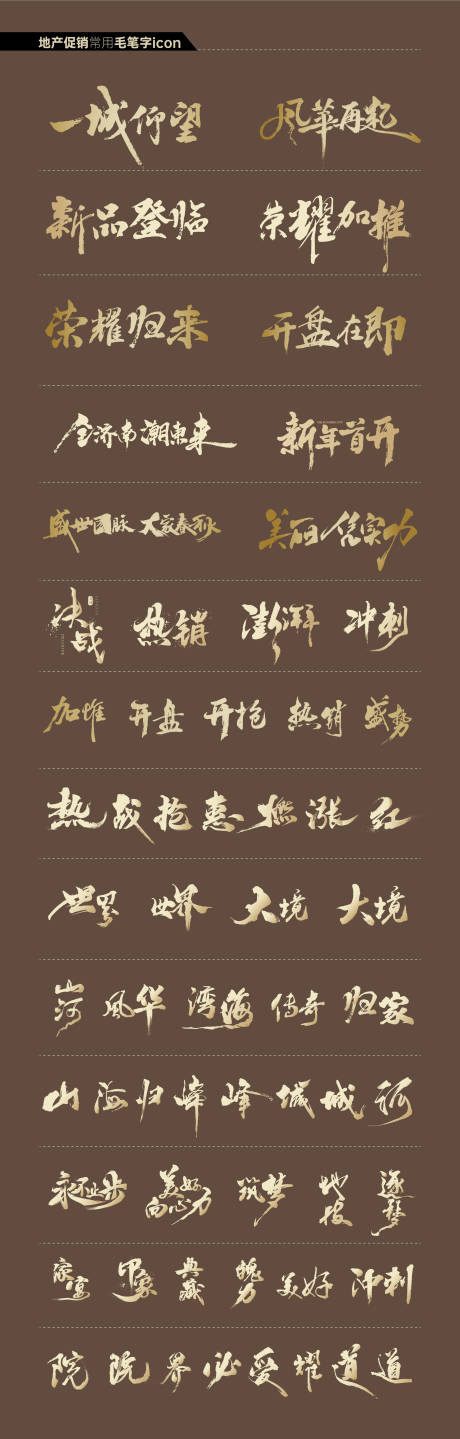 地产促销常用毛笔字icon
一城仰望 風華再起
新品登临 荣耀加推
荣耀归来 开盘在即
全济南潮東来 新年首开
盛世国脉 大家春秋 美丽凭实力
决战 热销 澎湃 冲刺
加推 开盘 开抢 热销 盛势
热 战 抢 惠 燃 涨 红
世界 世界 大境 大境
山河 風华 湾海 传奇 归家
山 海 归 峰 城 城
永不止步 美好向心力 筑梦 地技 逐梦
家宴 印象 典藏 魄力 美好 冲刺
院 院 界 必 爱 耀 道 道